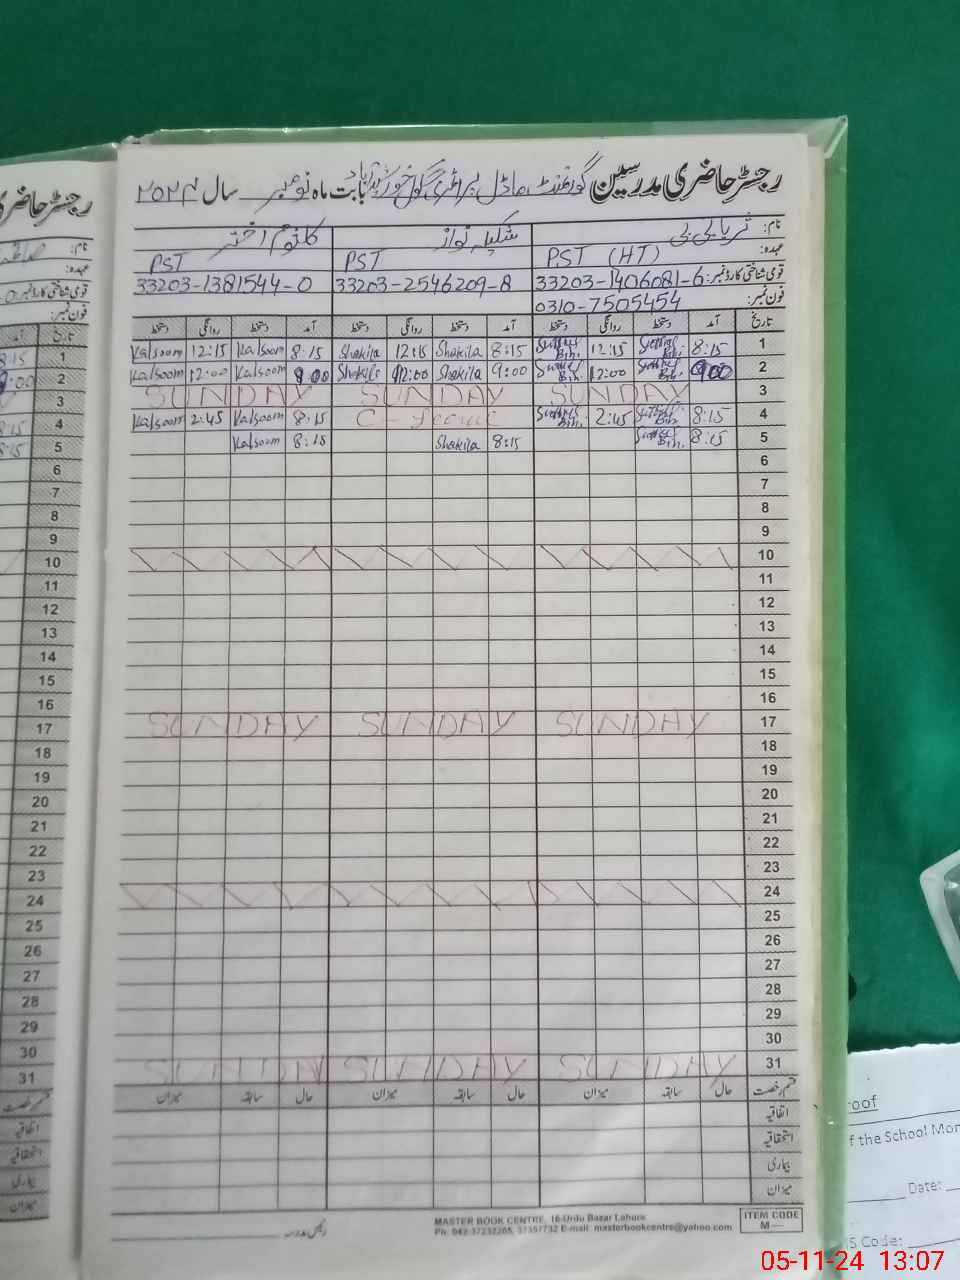 رجسٹر حاضری مدرسین گورنمنٹ ماڈل پرائمری سکول بابت ماہ نومبر سال ۲۰۲۴
نام: ثریا بی بی شکیلہ نواز کلثوم اختر
عہدہ: PST (HT) PST PST
قومی شناختی کارڈ نمبر: 33203-1406081-6 33203-2546209-8 33203-1381544-0
فون نمبر: 0310-7505454
تاریخ آمد دستخط روانگی دستخط آمد دستخط روانگی دستخط آمد دستخط روانگی دستخط
Kalsoom 12:15 Kalsoom 8:15 Shakila 12:15 Shakila 8:15 12:15 8:15 1
Kalsoom 12:00 Kalsoom 9:00 Shakila 12:00 Shakila 9:00 12:00 9:00 2
SUNDAY SUNDAY SUNDAY 3
Kalsoom 2:45 Kalsoom 8:15 C. 2:45 8:15 4
Kalsoom 8:15 Shakila 8:15 8:15 5
6
7
8
9
10
11
12
13
14
15
16
SUNDAY SUNDAY SUNDAY 17
18
19
20
21
22
23
24
25
26
27
28
29
30
SUNDAY SUNDAY SUNDAY 31
قسم رخصت حال سابقہ میزان حال سابقہ میزان حال سابقہ میزان
اتفاقیہ
استحقاقیہ
بیماری
میزان
رئیس مدرسہ
MASTER BOOK CENTRE, 16-Urdu Bazar Lahore
Ph: 042-37232205, 37357732 E-mail: masterbookcentre@yahoo.com
ITEM CODE
M—
رجسٹر حاضری
نام:
عہدہ:
قومی شناختی کارڈ نمبر:
فون نمبر:
تاریخ
1
2
3
4
5
6
7
8
9
10
11
12
13
14
15
16
17
18
19
20
21
22
23
24
25
26
27
28
29
30
31
قسم رخصت
اتفاقیہ
استحقاقیہ
بیماری
میزان
roof
f the School Mon
Date:
S Code:
05-11-24 13:07